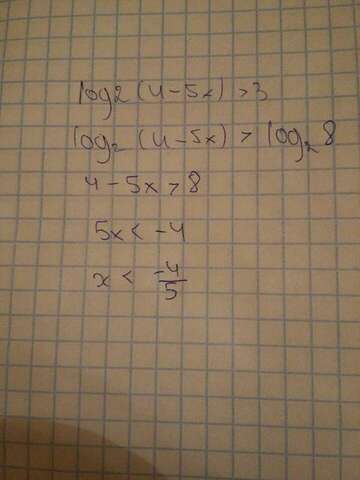 log2 (4-5x) > 3
log₂ (4-5x) > log₂ 8
4-5x > 8
5x < -4
x < -4/5